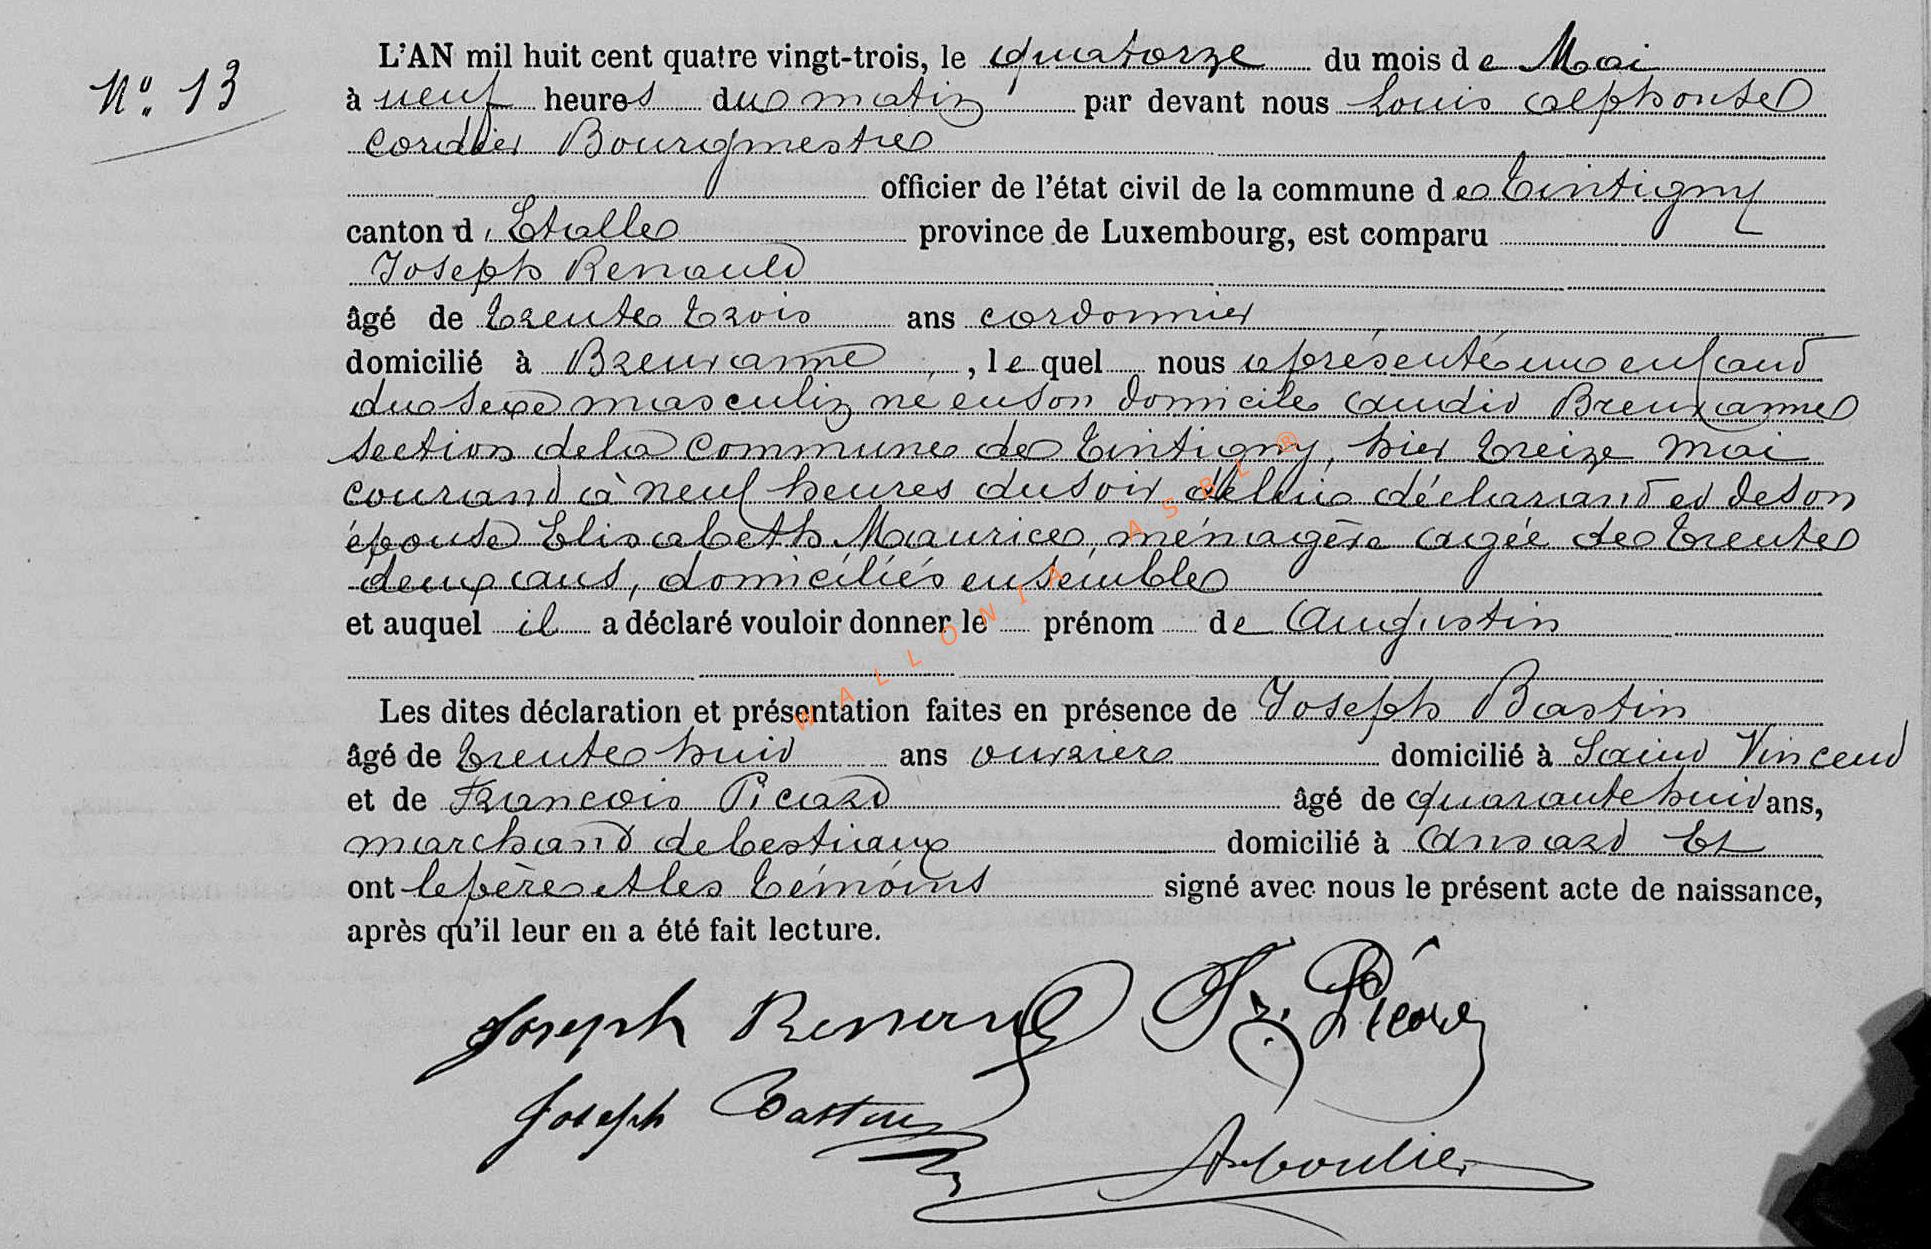 N°. 13
L'AN mil huit cent quatre vingt-trois, le quatorze du mois de Mai
à neuf heures du matin par devant nous Louis alphonse
cordier Bourgmestre
officier de l'état civil de la commune de Tintigny
canton d'Etalle province de Luxembourg, est comparu
Joseph Renauld
âgé de trente trois ans cordonnier
domicilié à Breuvanne, lequel nous a présenté un enfant
du sexe masculin né en son domicile audit Breuvanne
section de la commune de Tintigny, hier treize mai
courant à neuf heures du soir de lui déclarant et de son
épouse Elisabeth Maurice, ménagère agée de trente
deux ans, domiciliés ensemble
et auquel il a déclaré vouloir donner le prénom de Augustin
Les dites déclaration et présentation faites en présence de Joseph Bastin
âgé de trente huit ans ouvrier domicilié à Saint Vincent
et de Francois Picard âgé de quarante huit ans,
marchand de bestiaux domicilié à Ansart Et
ont le père et les témoins signé avec nous le présent acte de naissance,
après qu'il leur en a été fait lecture.
Joseph Renauld Fr. Picard
Joseph Bastin
WALLONIA ASBL ®